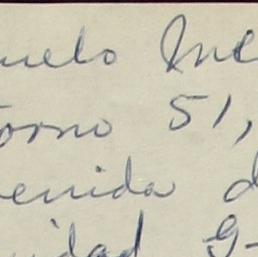 uelo Ine
orno 51,
enida d
idad g-